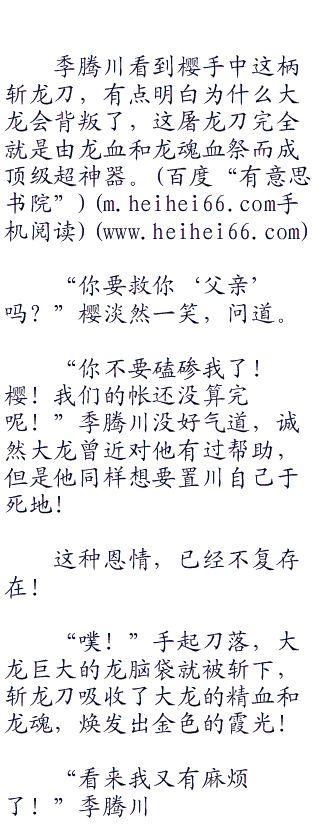 季腾川看到樱手中这柄
斩龙刀，有点明白为什么大
龙会背叛了，这屠龙刀完全
就是由龙血和龙魂血祭而成
顶级超神器。(百度“有意思
书院”)(m.heihei66.com手
机阅读)(www.heihei66.com)
“你要救你‘父亲’
吗？”樱淡然一笑，问道。
“你不要磕碜我了！
樱！我们的帐还没算完
呢！”季腾川没好气道，诚
然大龙曾近对他有过帮助，
但是他同样想要置川自己于
死地！
这种恩情，已经不复存
在！
“噗！”手起刀落，大
龙巨大的龙脑袋就被斩下，
斩龙刀吸收了大龙的精血和
龙魂，焕发出金色的霞光！
“看来我又有麻烦
了！”季腾川